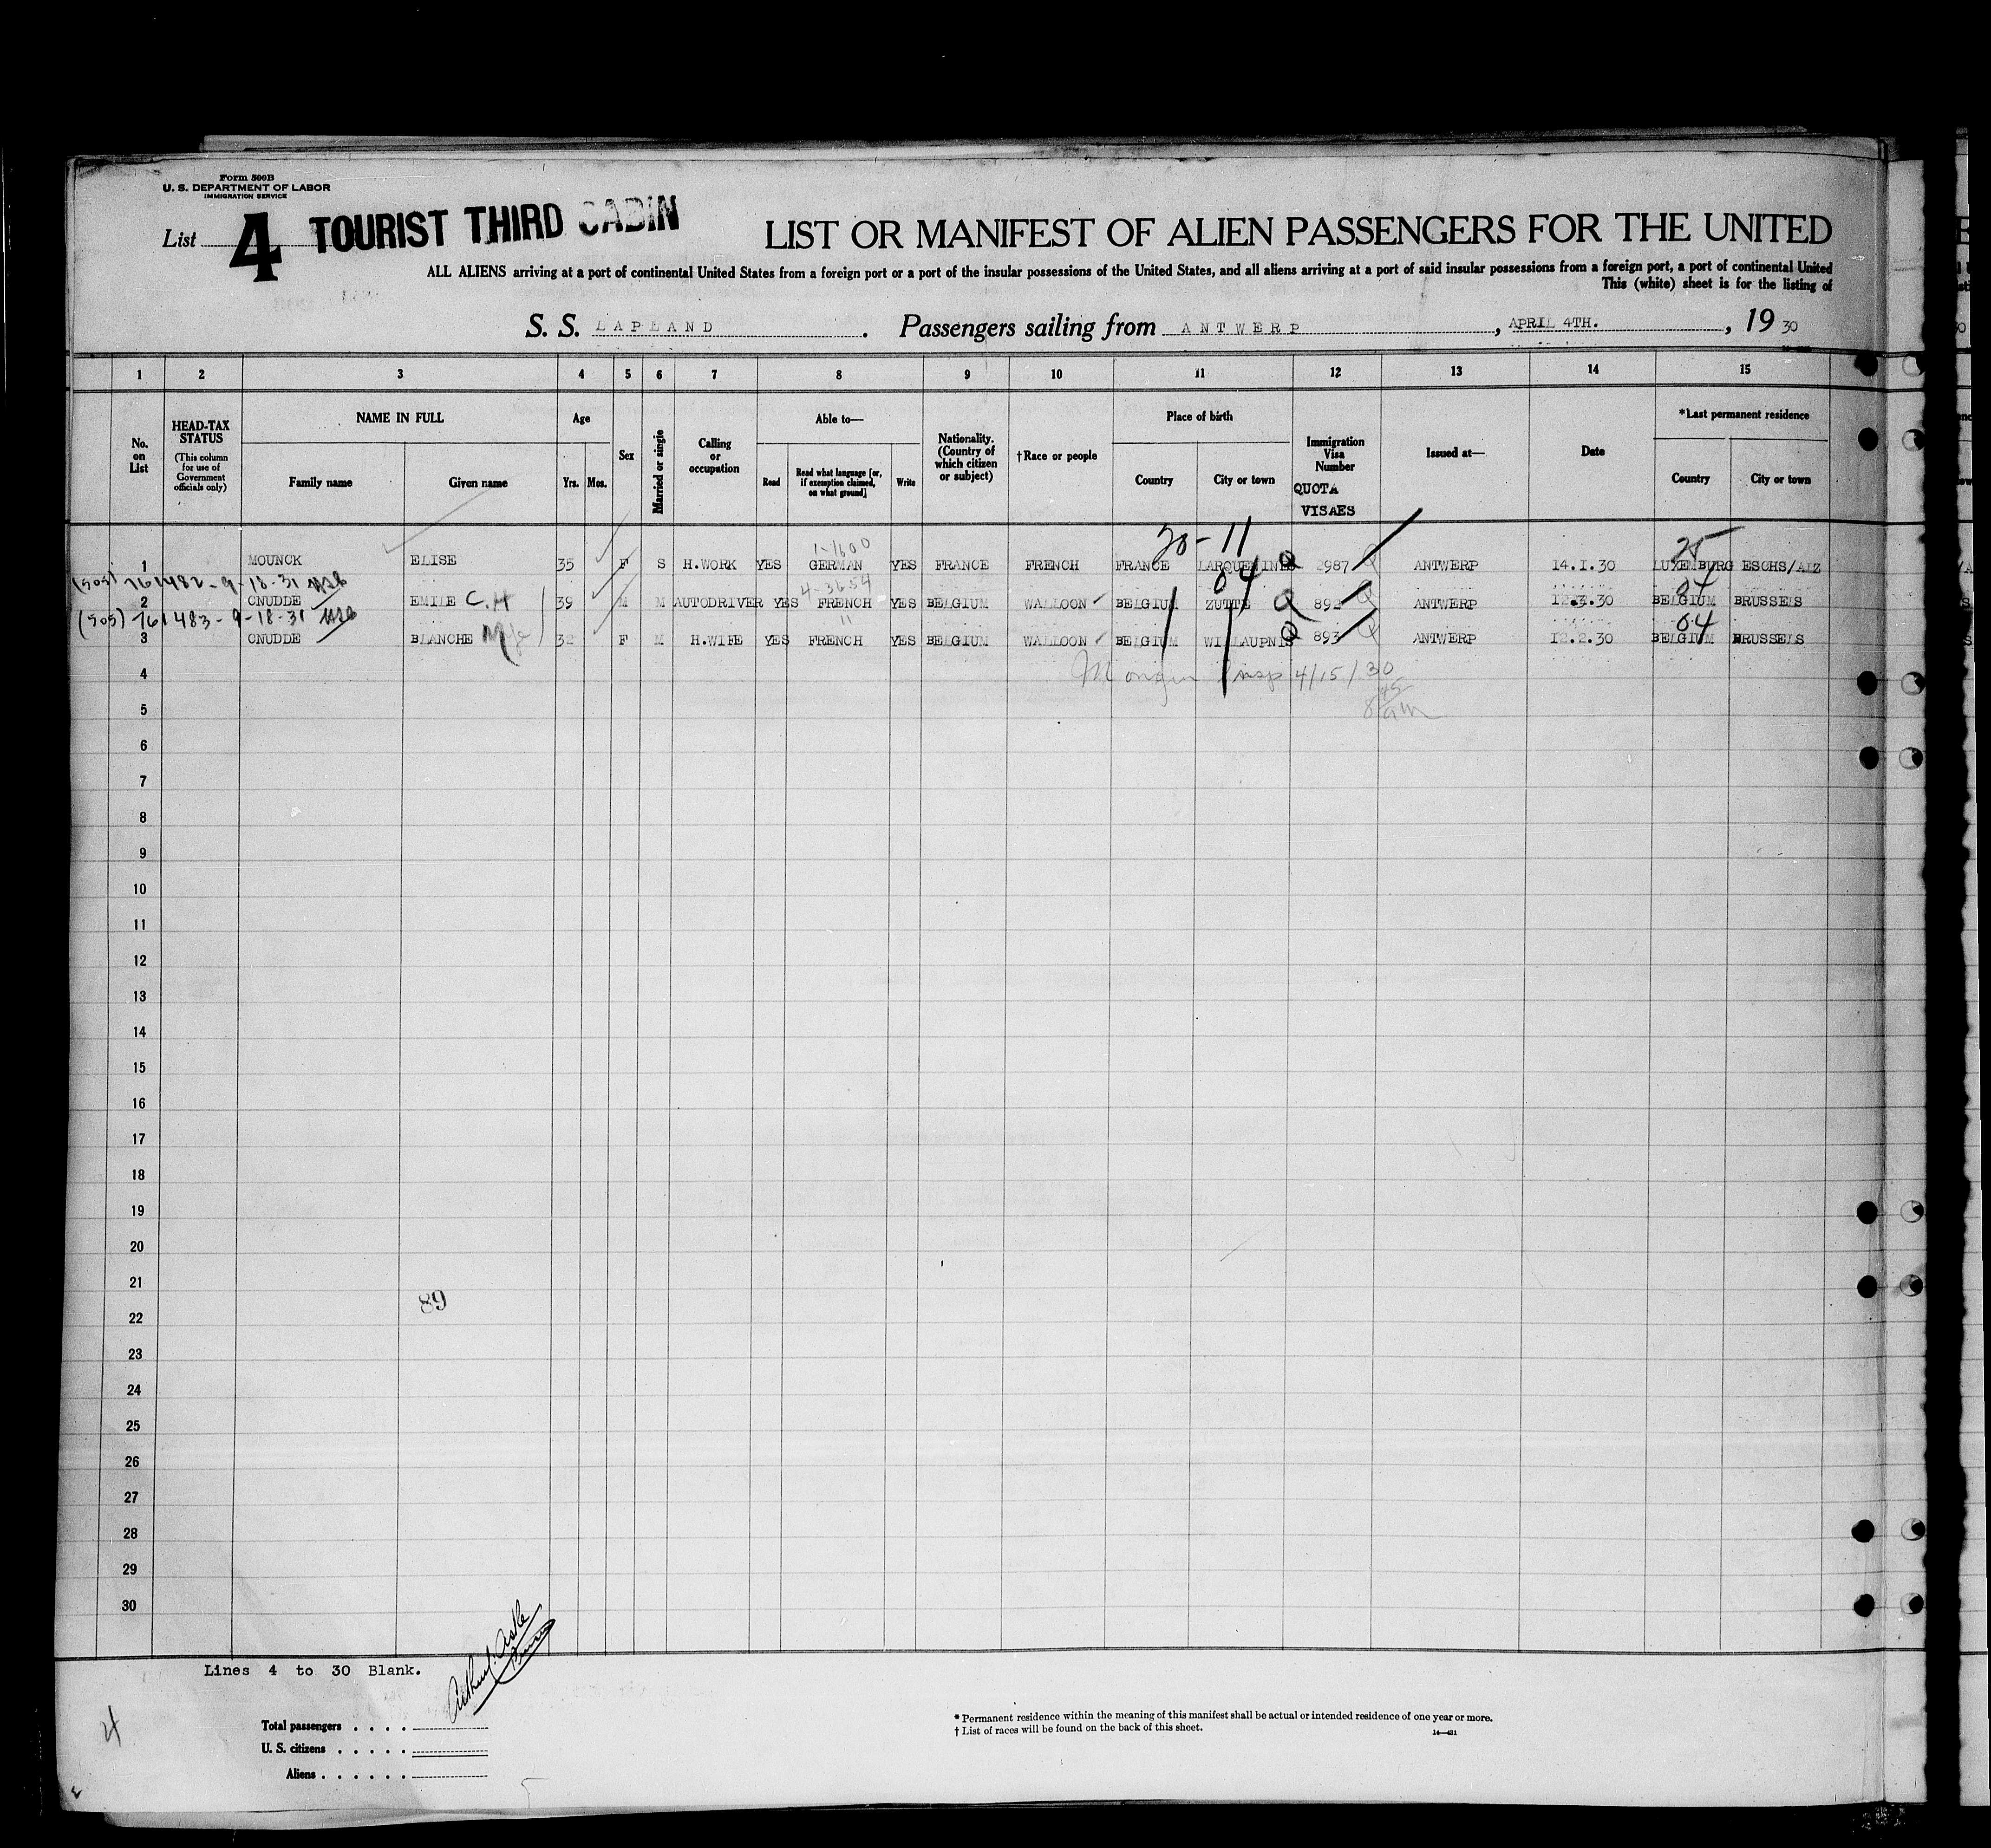 Form 500B
U. S. DEPARTMENT OF LABOR
IMMIGRATION SERVICE
List 4 TOURIST THIRD CABIN LIST OR MANIFEST OF ALIEN PASSENGERS FOR THE UNITED
ALL ALIENS arriving at a port of continental United States from a foreign port or a port of the insular possessions of the United States, and all aliens arriving at a port of said insular possessions from a foreign port, a port of continental United
This (white) sheet is for the listing of
S. S. LAPLAND. Passengers sailing from ANTWERP, APRIL 4TH., 19 30
1 2 3 4 5 6 7 8 9 10 11 12 13 14 15
No. on List
HEAD-TAX STATUS (This column for use of Government officials only)
NAME IN FULL
Family name Given name
Age
Yrs. Mos.
Sex
Married or single
Calling or occupation
Able to—
Read Read what language [or, if exemption claimed, on what ground] Write
Nationality. (Country of which citizen or subject)
†Race or people
Place of birth
Country City or town
Immigration Visa Number
QUOTA VISAES
Issued at—
Date
*Last permanent residence
Country City or town
1-1600 30-11 25
1 MOUNCK ELISE 35 F S H.WORK YES GERMAN YES FRANCE FRENCH FRANCE Q 2987 Q ANTWERP 14.I.30 LUXEMBURG ESCHS/ALZ
(505) 761482-9-18-31 4-3654 04 04
2 CNUDDE EMILE C.H 39 M M AUTODRIVER YES FRENCH YES BELGIUM WALLOON BELGIUM Q 892 Q ANTWERP 12.3.30 BELGIUM BRUSSELS
(505) 761483-9-18-31 11 04
3 CNUDDE BLANCHE 32 F M H.WIFE YES FRENCH YES BELGIUM WALLOON BELGIUM Q 893 Q ANTWERP 12.2.30 BELGIUM BRUSSELS
4 Insp 4/15/30
8 45 am
5
6
7
8
9
10
11
12
13
14
15
16
17
18
19
20
21
89
22
23
24
25
26
27
28
29
30
Lines 4 to 30 Blank.
4
Total passengers . . . .
U. S. citizens . . . . .
Aliens . . . . . .
* Permanent residence within the meaning of this manifest shall be actual or intended residence of one year or more.
† List of races will be found on the back of this sheet.